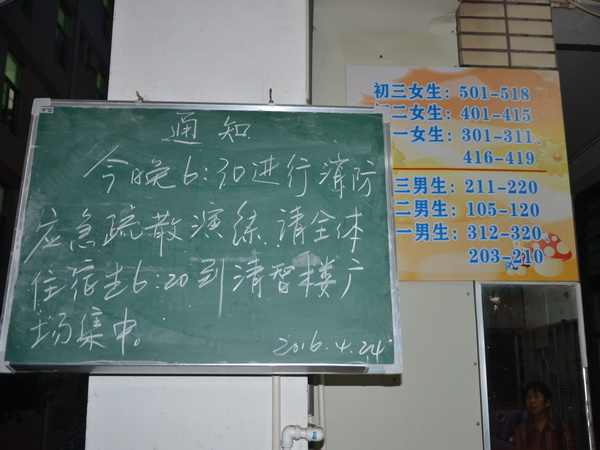 通知
今晚6:30进行消防
应急疏散演练,请全体
住宿生6:20到清智楼广
场集中。
2016.4.24
初三女生:501-518
二女生:401-415
一女生:301-311
416-419
三男生:211-220
二男生:105-120
一男生:312-320
203-210